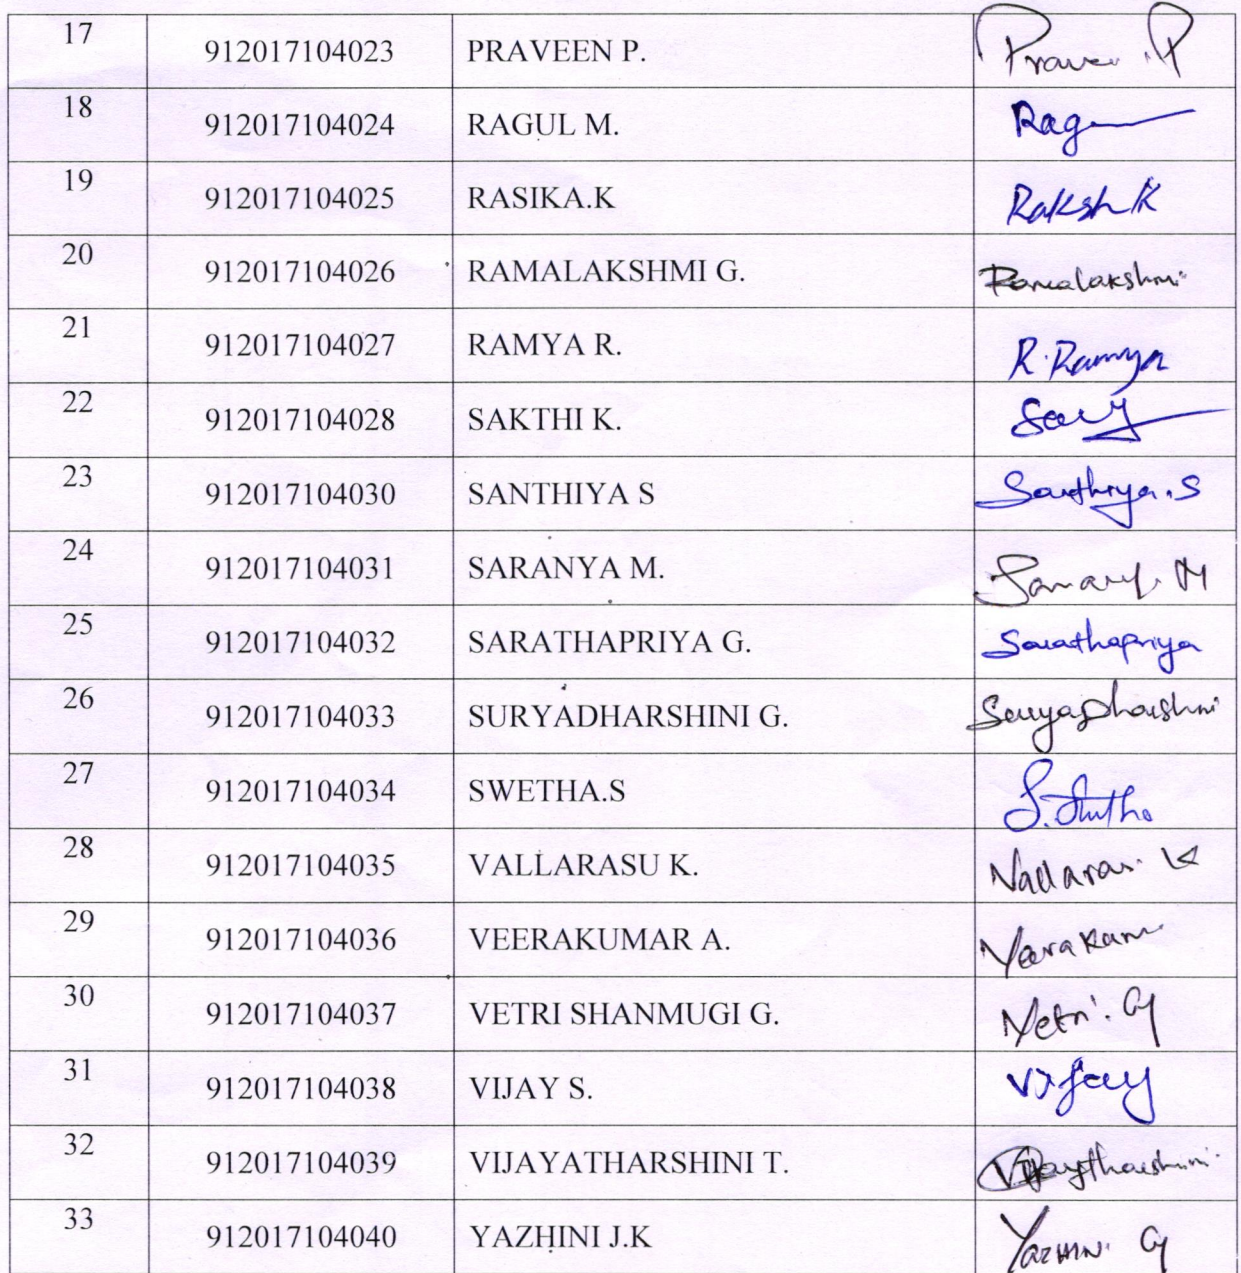 17 912017104023 PRAVEEN P. Praveen P
18 912017104024 RAGUL M. Ragu
19 912017104025 RASIKA.K Rakshi K
20 912017104026 RAMALAKSHMI G. Ramalakshmi
21 912017104027 RAMYA R. R. Ramya
22 912017104028 SAKTHI K.
23 912017104030 SANTHIYA S Santhiya.S
24 912017104031 SARANYA M. M
25 912017104032 SARATHAPRIYA G. Sarathapriya
26 912017104033 SURYADHARSHINI G. SuryaDharshini
27 912017104034 SWETHA.S
28 912017104035 VALLARASU K. Vallarasu K
29 912017104036 VEERAKUMAR A. Veerakum
30 912017104037 VETRI SHANMUGI G. Vetri. G
31 912017104038 VIJAY S. Vijay
32 912017104039 VIJAYATHARSHINI T. Vijaytharshini
33 912017104040 YAZHINI J.K Yazhini G